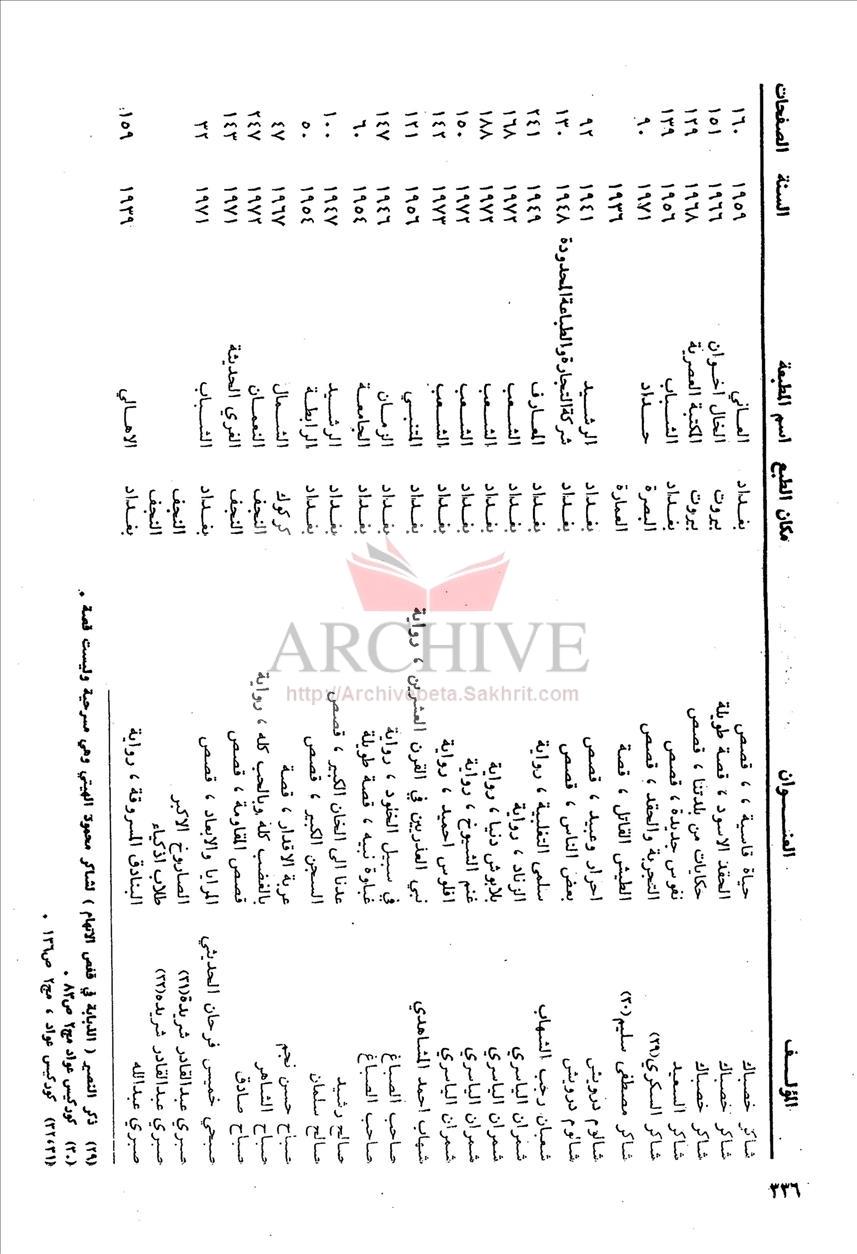 ٣٣٦
المؤلف العنوان مكان الطبع اسم المطبعة السنة الصفحات
شاكر خصباك حياة قاسية ، قصص بغداد العاني ١٩٥٩ ١٦٠
شاكر خصباك الحقد الاسود ، قصة طويلة بيروت الخال اخوان ١٩٦٦ ١٥١
شاكر خصباك حكايات من بلدتنا ، قصص بيروت المكتبة العصرية ١٩٦٨ ١٢٩
شاكر السعيد نفوس جديدة ، قصص بغداد الشباب ١٩٥٦ ١٣٩
شاكر السكري(٢٩) التجربة والحقد ، قصص البصرة حداد ١٩٧١ ٩٠
شاكر مصطفى سليم(٣٠) الطيش القاتل ، قصة العمارة ١٩٣٦
شالوم درويش احرار وعبيد ، قصص بغداد الرشيد ١٩٤١ ٩٢
شالوم درويش بعض الناس ، قصص بغداد شركة التجارة والطباعة المحدودة ١٩٤٨ ١٣٠
شعبان رجب الشهاب سلمى التغلبية ، رواية بغداد المعارف ١٩٤٩ ٢٤١
شمران الياسري الزناد ، رواية بغداد الشعب ١٩٧٢ ١٦٨
شمران الياسري بلابوش دنيا ، رواية بغداد الشعب ١٩٧٢ ١٨٨
شمران الياسري غنم الشيوخ ، رواية بغداد الشعب ١٩٧٢ ١٥٠
شمران الياسري افلوس احميد ، رواية بغداد الشعب ١٩٧٣ ١٤٢
شهاب احمد المشاهدي نبي العذريين في القرن العشرين ، رواية بغداد المتنبي ١٩٥٦ ١٢١
صاحب الصباغ في سبيل الخلود ، رواية بغداد الزمان ١٩٤٦ ١٤٧
صاحب الصباغ غباوة نبيه ، قصة طويلة بغداد الجامعة ١٩٥٤ ٦٠
صالح رشيد عدنا الى الخان الكبير ، قصص بغداد الرشيد ١٩٤٧ ١٠٠
صالح سلمان السجن الكبير ، قصص بغداد الرابطة ١٩٥٤ ٥٠
صباح حسن نجم عربة الاقدار ، قصة كركوك الشمال ١٩٦٧ ٤٧
صباح الشاهر بالغضب كله وبالحب كله ، رواية النجف النعمان ١٩٧٢ ٢٤٧
صباح صادق قصص المقاومة ، قصص النجف الغري الحديثة ١٩٧١ ١٤٣
صبحي خميس فرحان الحديثي المرايا والابعاد ، قصص بغداد الشباب ١٩٧١ ٣٢
صبري عبدالقادر شريدة(٣١) الصاروخ الاكبر النجف
صبري عبدالقادر شريده(٣٢) طلاب اذكياء النجف
صبري عبدالله البنادق المسروقة ، رواية بغداد الاهالي ١٩٣٩ ١٥٩
(٢٩) ذكر النصير ( الذبابة في قفص الاتهام ) لشاكر محمود الهيتي وهي مسرحية وليست قصة .
(٣٠) كوركيس عواد مج٢ ص٨٣ .
(٣١،٣٢) كوركيس عواد ، مج٢ ص١٣٦ .
ARCHIVE
http://Archivebeta.Sakhrit.com